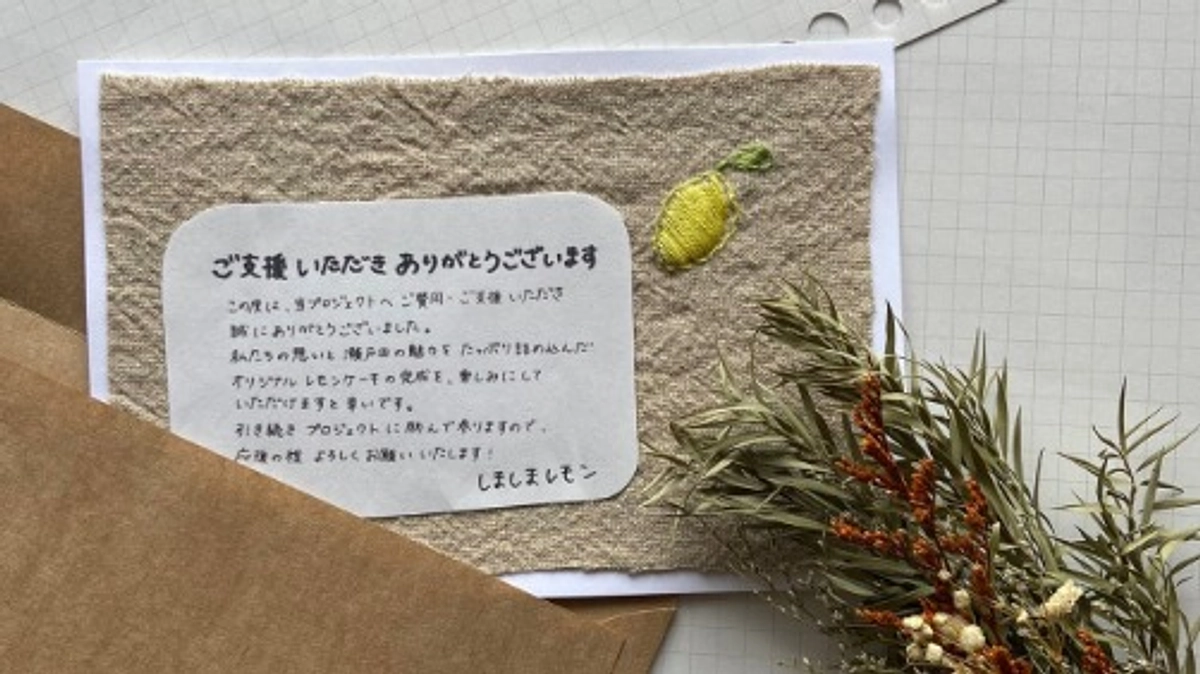 ご支援いただき ありがとうございます
この度は、当プロジェクトへ ご賛同・ご支援 いただき
誠にありがとうございました。
私たちの想いと 瀬戸田の魅力を たっぷり詰め込んだ
オリジナル レモンケーキの完成を、楽しみにして
いただけますと幸いです。
引き続き プロジェクトに励んで参りますので、
応援の程 よろしくお願いいたします!
しましまレモン